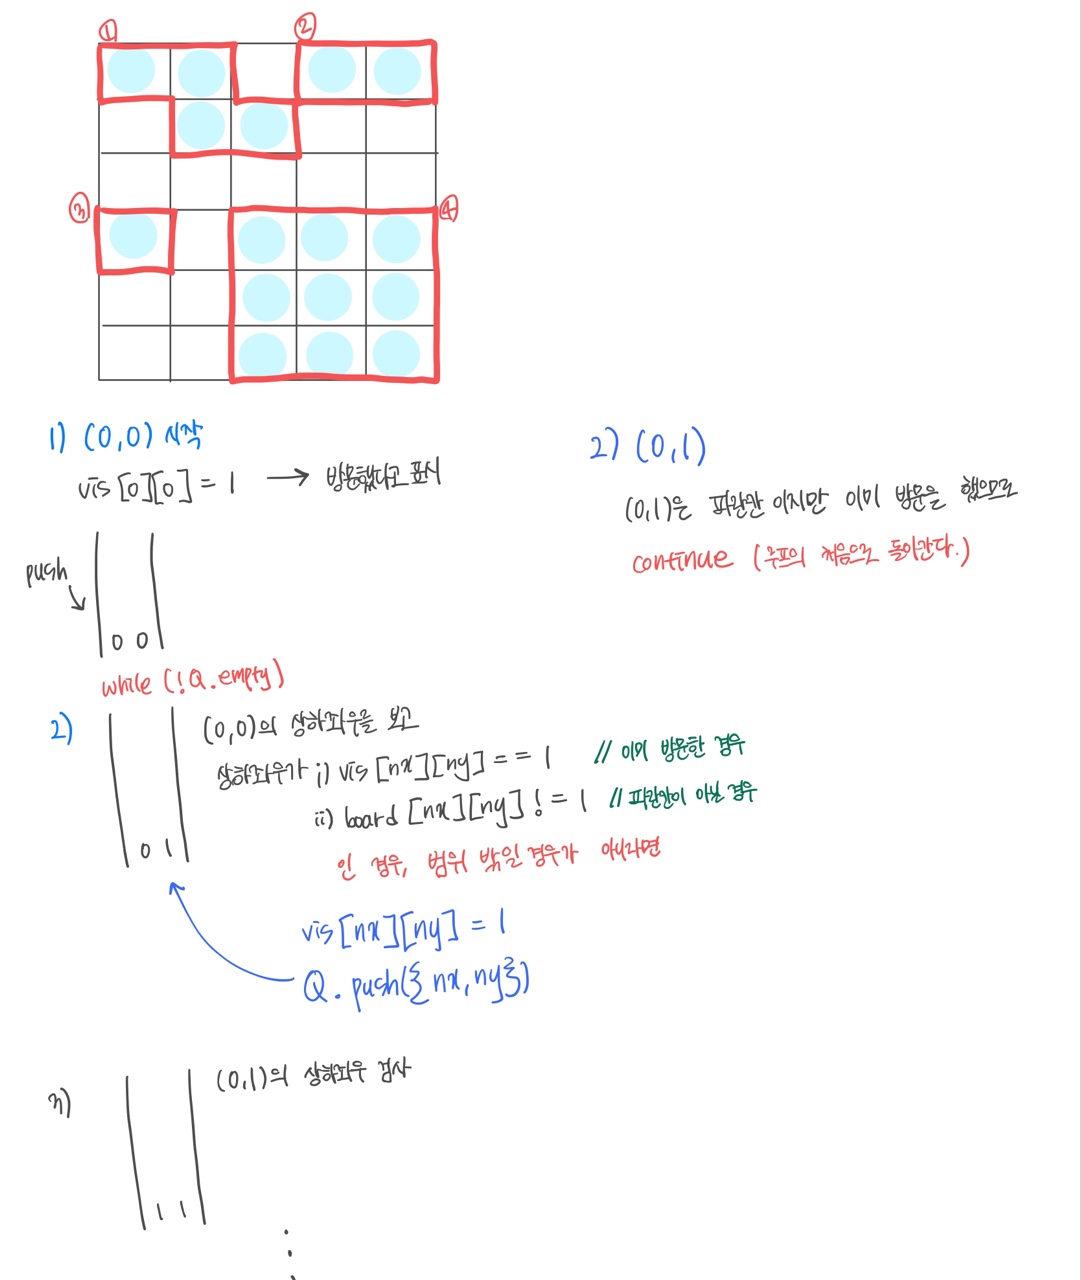 ① ②
③ ④
1) (0,0) 시작
vis[0][0] = 1 → 방문했다고 표시
push
0 0
while (!Q.empty)
2) (0,0)의 상하좌우를 보고
상하좌우가 i) vis[nx][ny] == 1 // 이미 방문한 경우
ii) board [nx][ny] != 1 // 파란칸이 아닌 경우
0 1
인 경우, 범위 밖일 경우가 아니라면
vis[nx][ny] = 1
Q.push({nx,ny})
3) (0,1)의 상하좌우 검사
1 1
2) (0,1)
(0,1)은 파란칸이지만 이미 방문을 했으므로
continue (루프의 처음으로 돌아간다.)